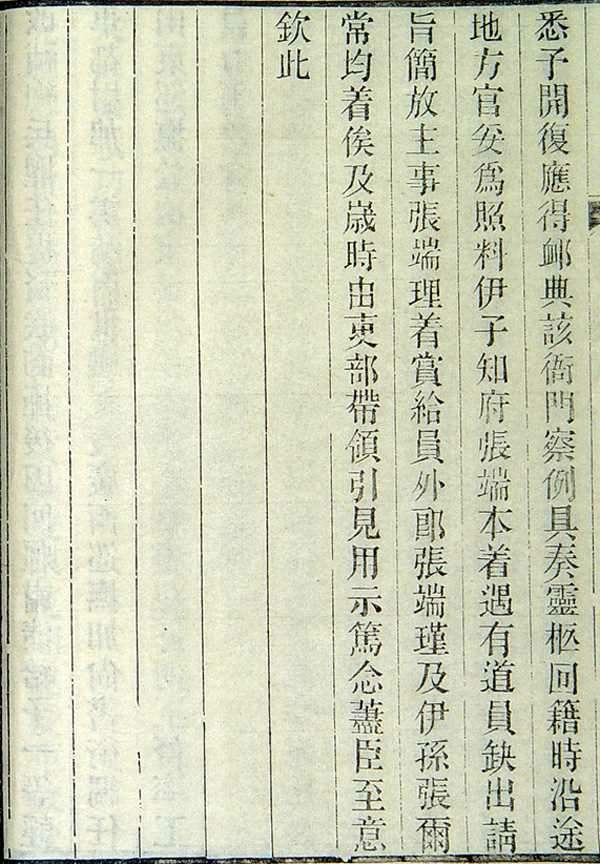 悉予開復應得卹典該衙門察例具奏靈柩回籍時沿途
地方官妥爲照料伊子知府張端本着遇有道員缺出請
旨簡放主事張端理着賞給員外郎張端瑾及伊孫張爾
常均着俟及嵗時由吏部帶領引見用示篤念藎臣至意
欽此